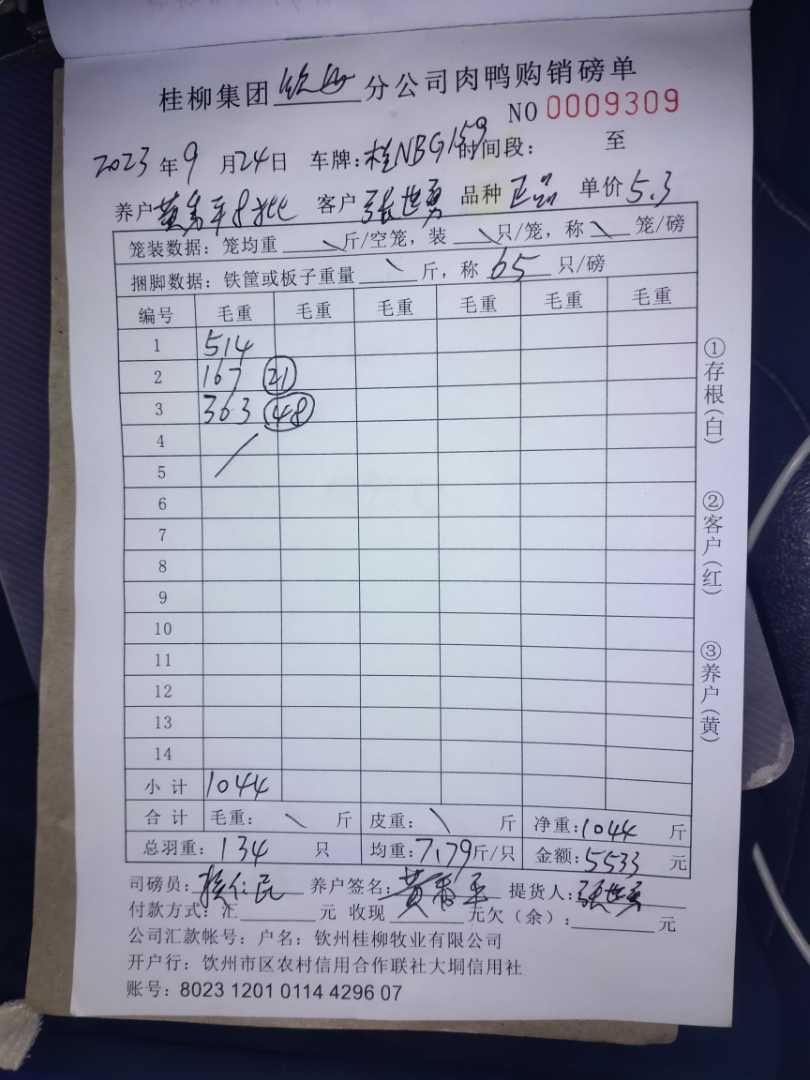 桂柳集团 钦州 分公司肉鸭购销磅单
NO 0009309
2023年9月24日 车牌:桂NBG159 时间段: 至
养户 黄秀平8批 客户 张世勇 品种 正品 单价 5.3
笼装数据:笼均重 \ 斤/空笼,装 \ 只/笼,称 \ 笼/磅
捆脚数据:铁筐或板子重量 \ 斤,称 65 只/磅
编号 毛重 毛重 毛重 毛重 毛重 毛重
1 514
2 167 21
3 363 48
4
5
6
7
8
9
10
11
12
13
14
小计 1044
合计 毛重: \ 斤 皮重: \ 斤 净重:1044 斤
总羽重:134 只 均重:7.79斤/只 金额:5533 元
司磅员: 仁民 养户签名:黄秀平 提货人:张世勇
付款方式:汇 元 收现 元欠(余): 元
公司汇款帐号:户名:钦州桂柳牧业有限公司
开户行:饮州市区农村信用合作联社大垌信用社
账号:8023 1201 0114 4296 07
①存根(白)
②客户(红)
③养户(黄)